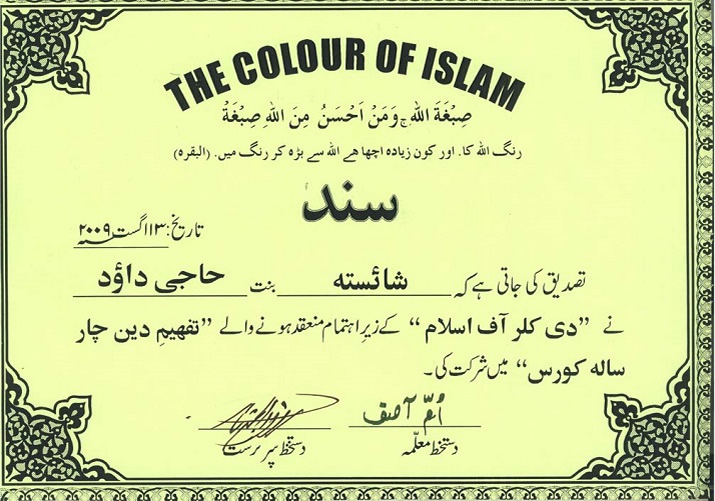 THE COLOUR OF ISLAM
صِبْغَةَ اللهِ ج وَمَنْ اَحْسَنُ مِنَ اللهِ صِبْغَةً
رنگ اللہ کا. اور کون زیادہ اچھا ھے اللہ سے بڑہ کر رنگ میں. (البقرہ)
سند
تاریخ: ۱۳ اگست ۲۰۰۹
تصدیق کی جاتی ہے کہ شائستہ بنت حاجی داؤد
نے ”دی کلر آف اسلام“ کے زیرِ اہتمام منعقد ہونے والے ”تفہیمِ دین چار
سالہ کورس“ میں شرکت کی۔
اُمِّ آصف
دستخط معلّمہ دستخط سرپرست